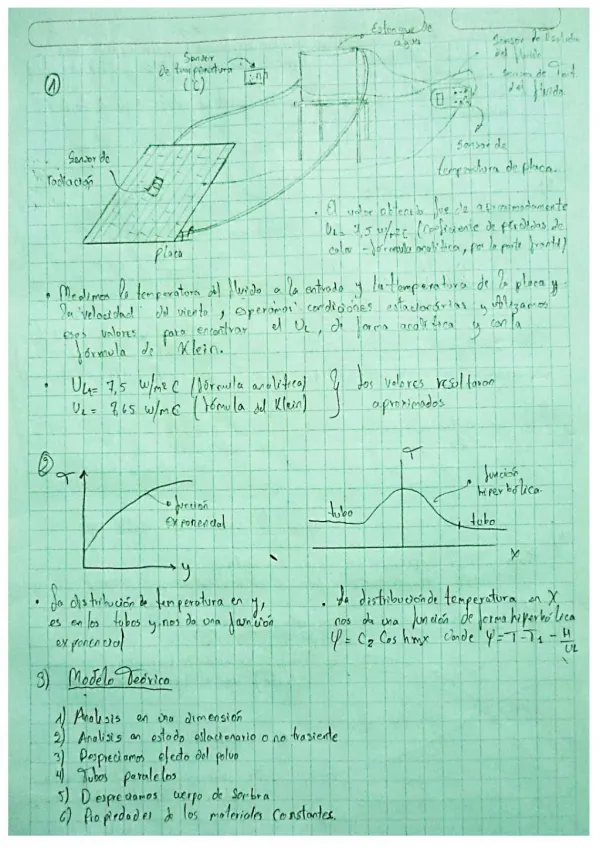 Estanque de
agua
Sensor
de temperatura
(°C)
①
del fluido
Sensor de Temp.
del fluido
Sensor de
radiación
Sensor de
temperatura de placa.
Placa
• El valor obtenido fue de aproximadamente
UL= 7,5 w/m²C (coeficiente de pérdidas de
calor - formula analítica, por la parte frontal)
• Medimos la temperatura del fluido a la entrada y la temperatura de la placa y
la velocidad del viento, esperamos condiciones estacionarias y utilizamos
esos valores para encontrar el UL, de forma analítica y con la
fórmula de Klein.
• UL= 7,5 w/m²C (fórmula analítica)
UL= 7,65 w/m C (fómula del Klein)
Los valores resultaron
aproximados
②
T
• función
exponencial
y
T
función
hiperbólica.
tubo
tubo
X
• La distribución de temperatura en y,
es en los tubos y nos da una función
exponencial
• La distribución de temperatura en X
nos da una función de forma hiperbólica
Ψ = C2 Cos hmx donde Ψ = T - T1 - H/UL
3) Modelo Teórico
1) Analisis en una dimensión
2) Analisis en estado estacionario o no trasiente
3) Despreciamos efecto del polvo
4) Tubos paralelos
5) Despreciamos de Sombra
6) Propiedades de los materiales Constantes.